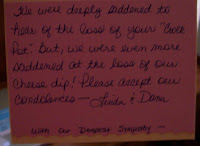 We were deeply saddened to
hear of the loss of your "Crock
Pot". But, we were even more
saddened at the loss of our
cheese dip! Please accept our
condolences — Linda & Dana
With our Deepest Sympathy —